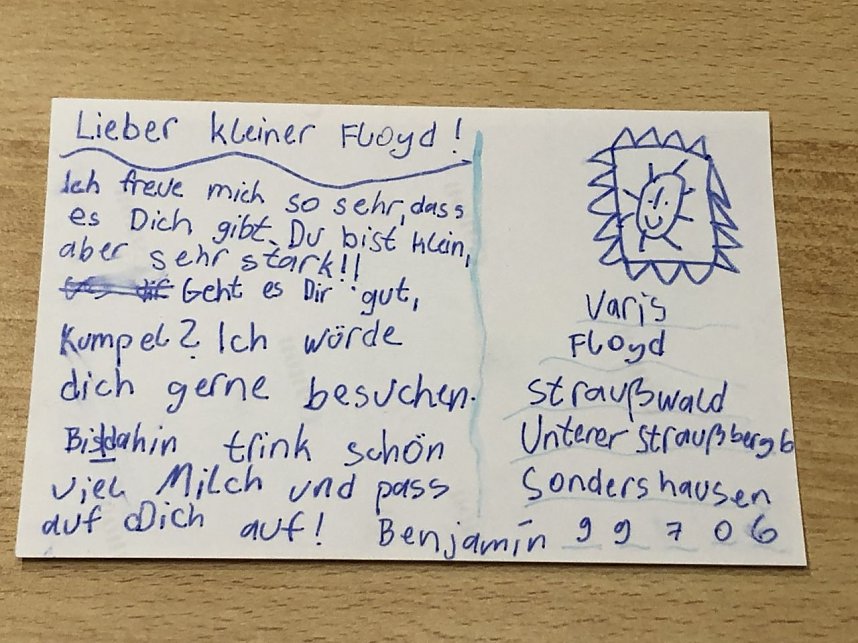 Lieber kleiner Floyd!
Ich freue mich so sehr, dass
es Dich gibt. Du bist klein,
aber sehr stark!!
Geht es Dir gut,
Kumpel? Ich wörde
dich gerne besuchen.
Bis dahin trink schön
viel Milch und pass
auf Dich auf! Benjamin
Varis
Floyd
Straußwald
Unterer Straußberg 6
Sondershausen
99706